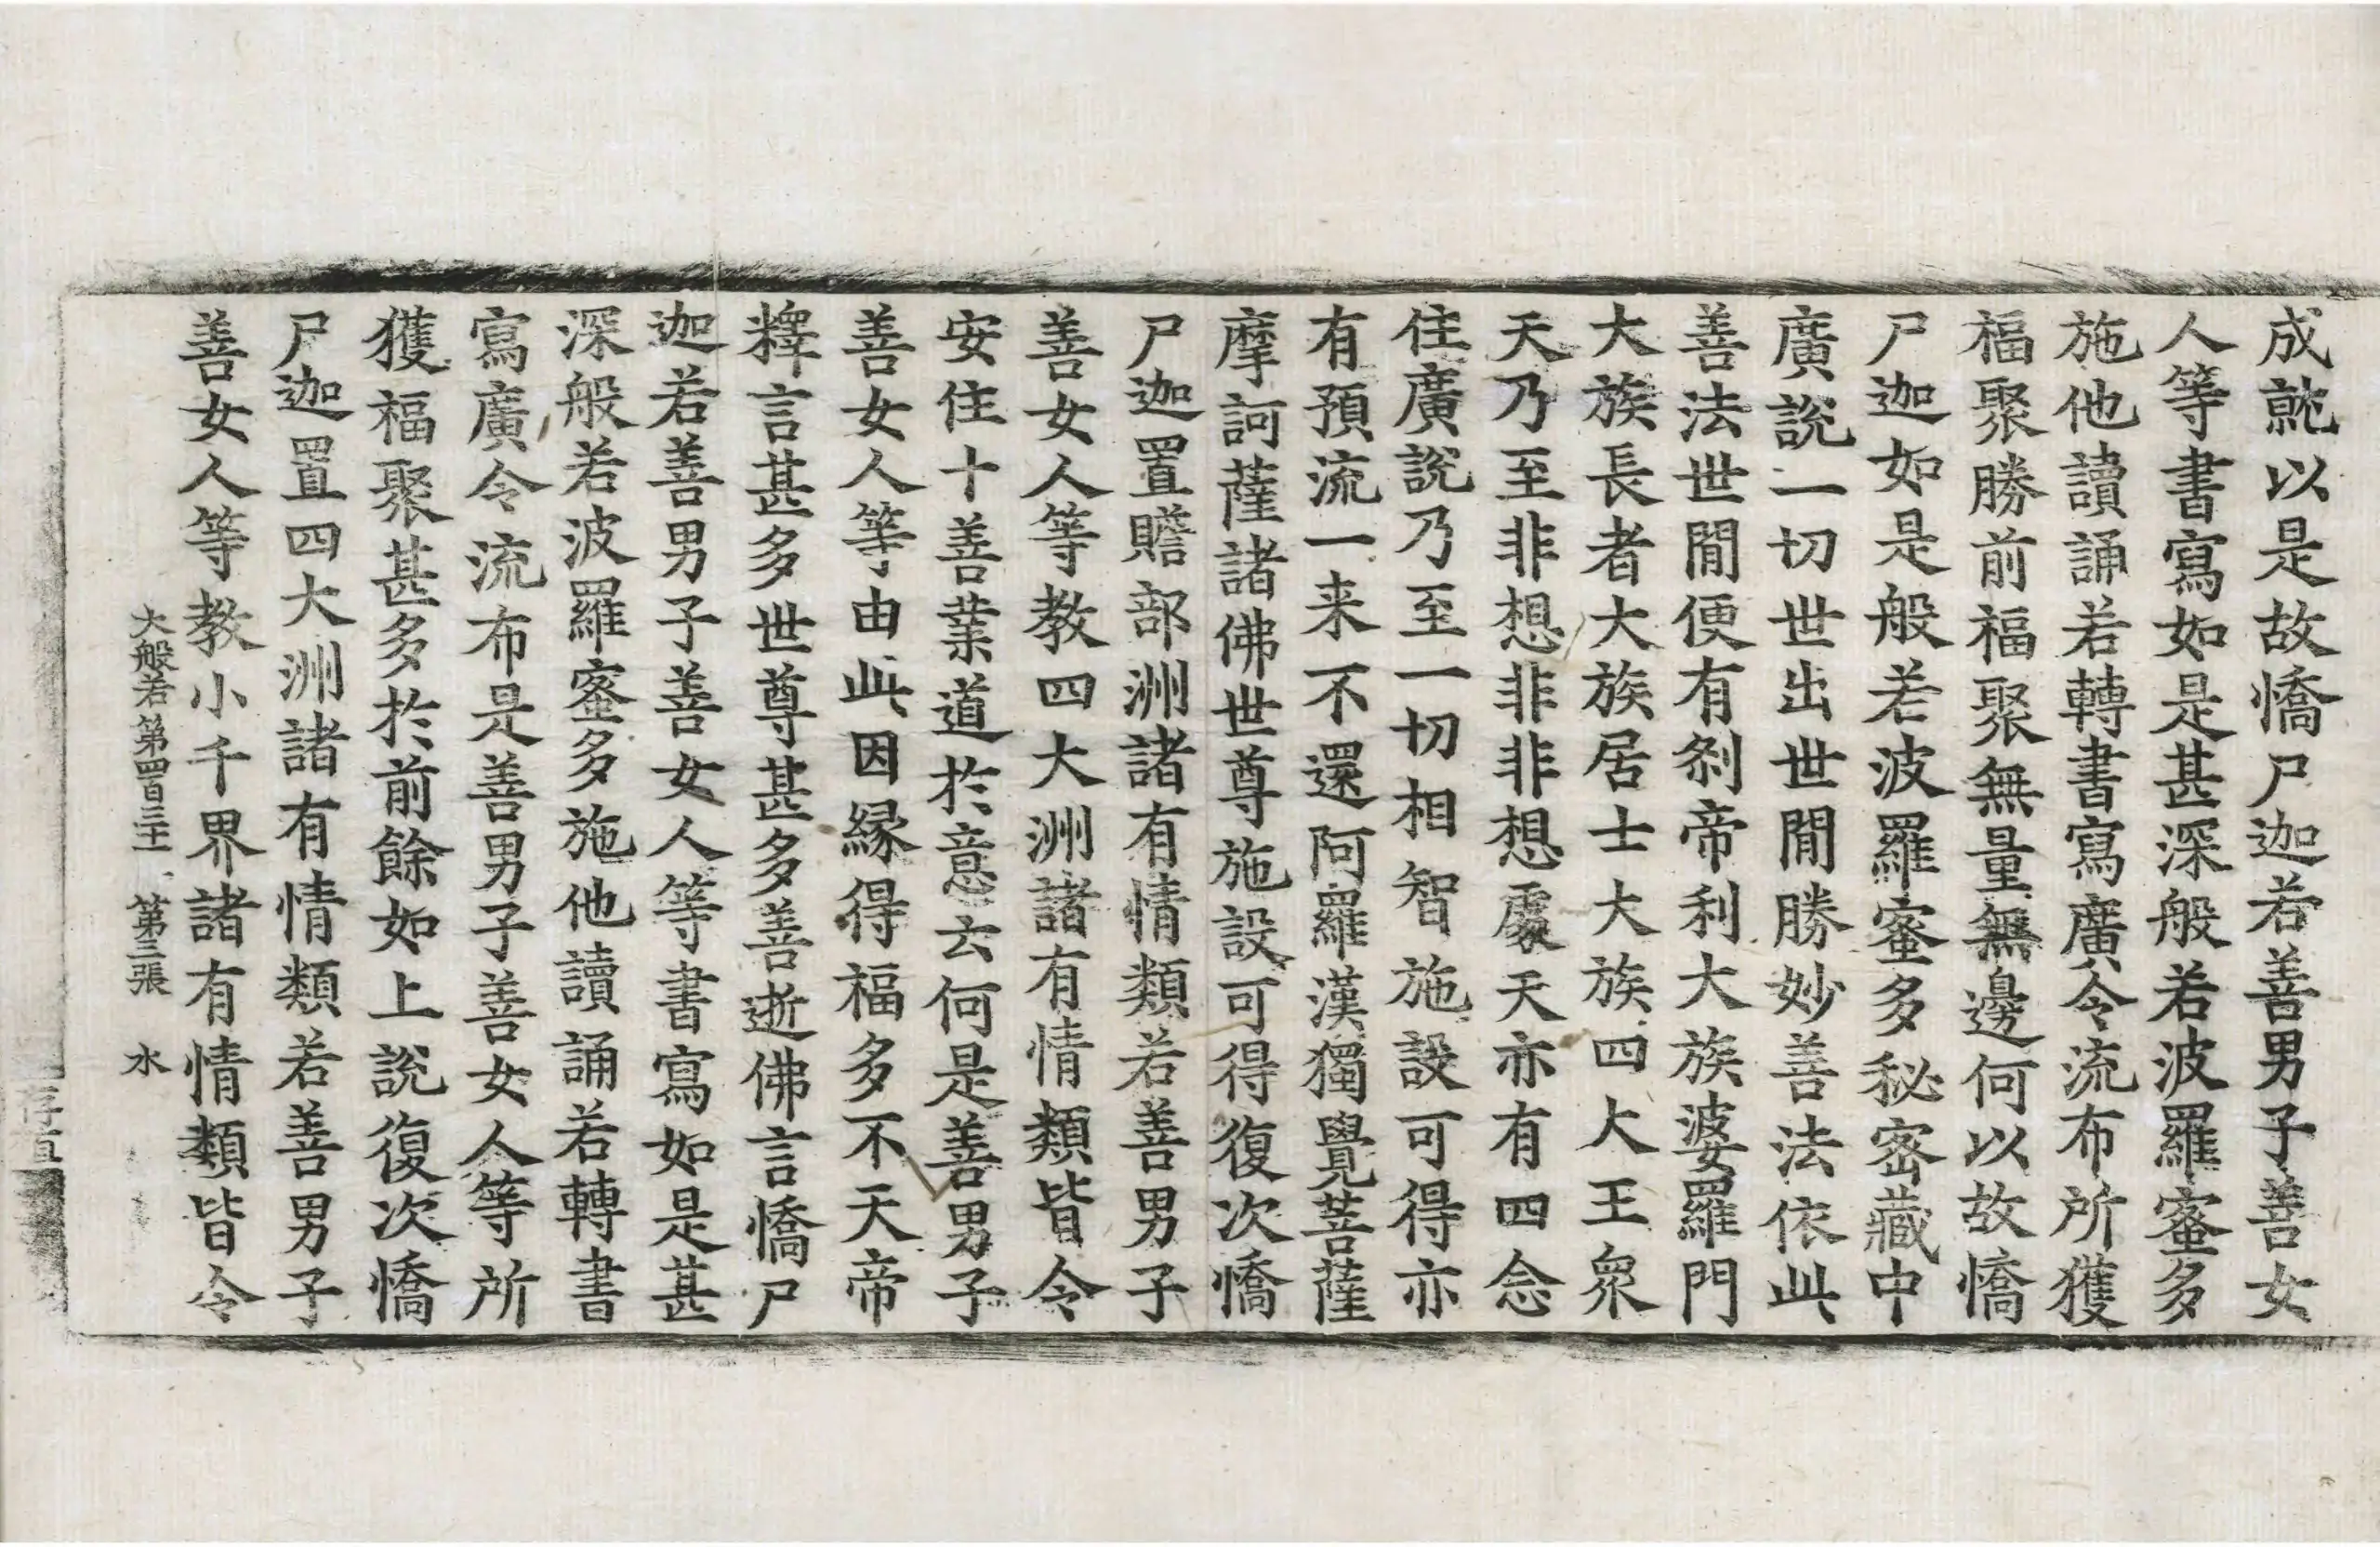 成就以是故憍尸迦若善男子善女
人等書寫如是甚深般若波羅蜜多
施他讀誦若轉書寫廣令流布所獲
福聚勝前福聚無量無邊何以故憍
尸迦如是般若波羅蜜多秘密藏中
廣說一切世出世閒勝妙善法依此
善法世閒便有剎帝利大族婆羅門
大族長者大族居士大族四大王衆
天乃至非想非非想處天亦有四念
住廣說乃至一切相智施設可得亦
有預流一来不還阿羅漢獨覺菩薩
摩訶薩諸佛世尊施設可得復次憍
尸迦置贍部洲諸有情類若善男子
善女人等教四大洲諸有情類皆令
安住十善業道於意云何是善男子
善女人等由此因緣得福多不天帝
釋言甚多世尊甚多善逝佛言憍尸
迦若善男子善女人等書寫如是甚
深般若波羅蜜多施他讀誦若轉書
寫廣令流布是善男子善女人等所
獲福聚甚多於前餘如上說復次憍
尸迦置四大洲諸有情類若善男子
善女人等教小千界諸有情類皆令
大般若第四百三十一 第三張 水
存直